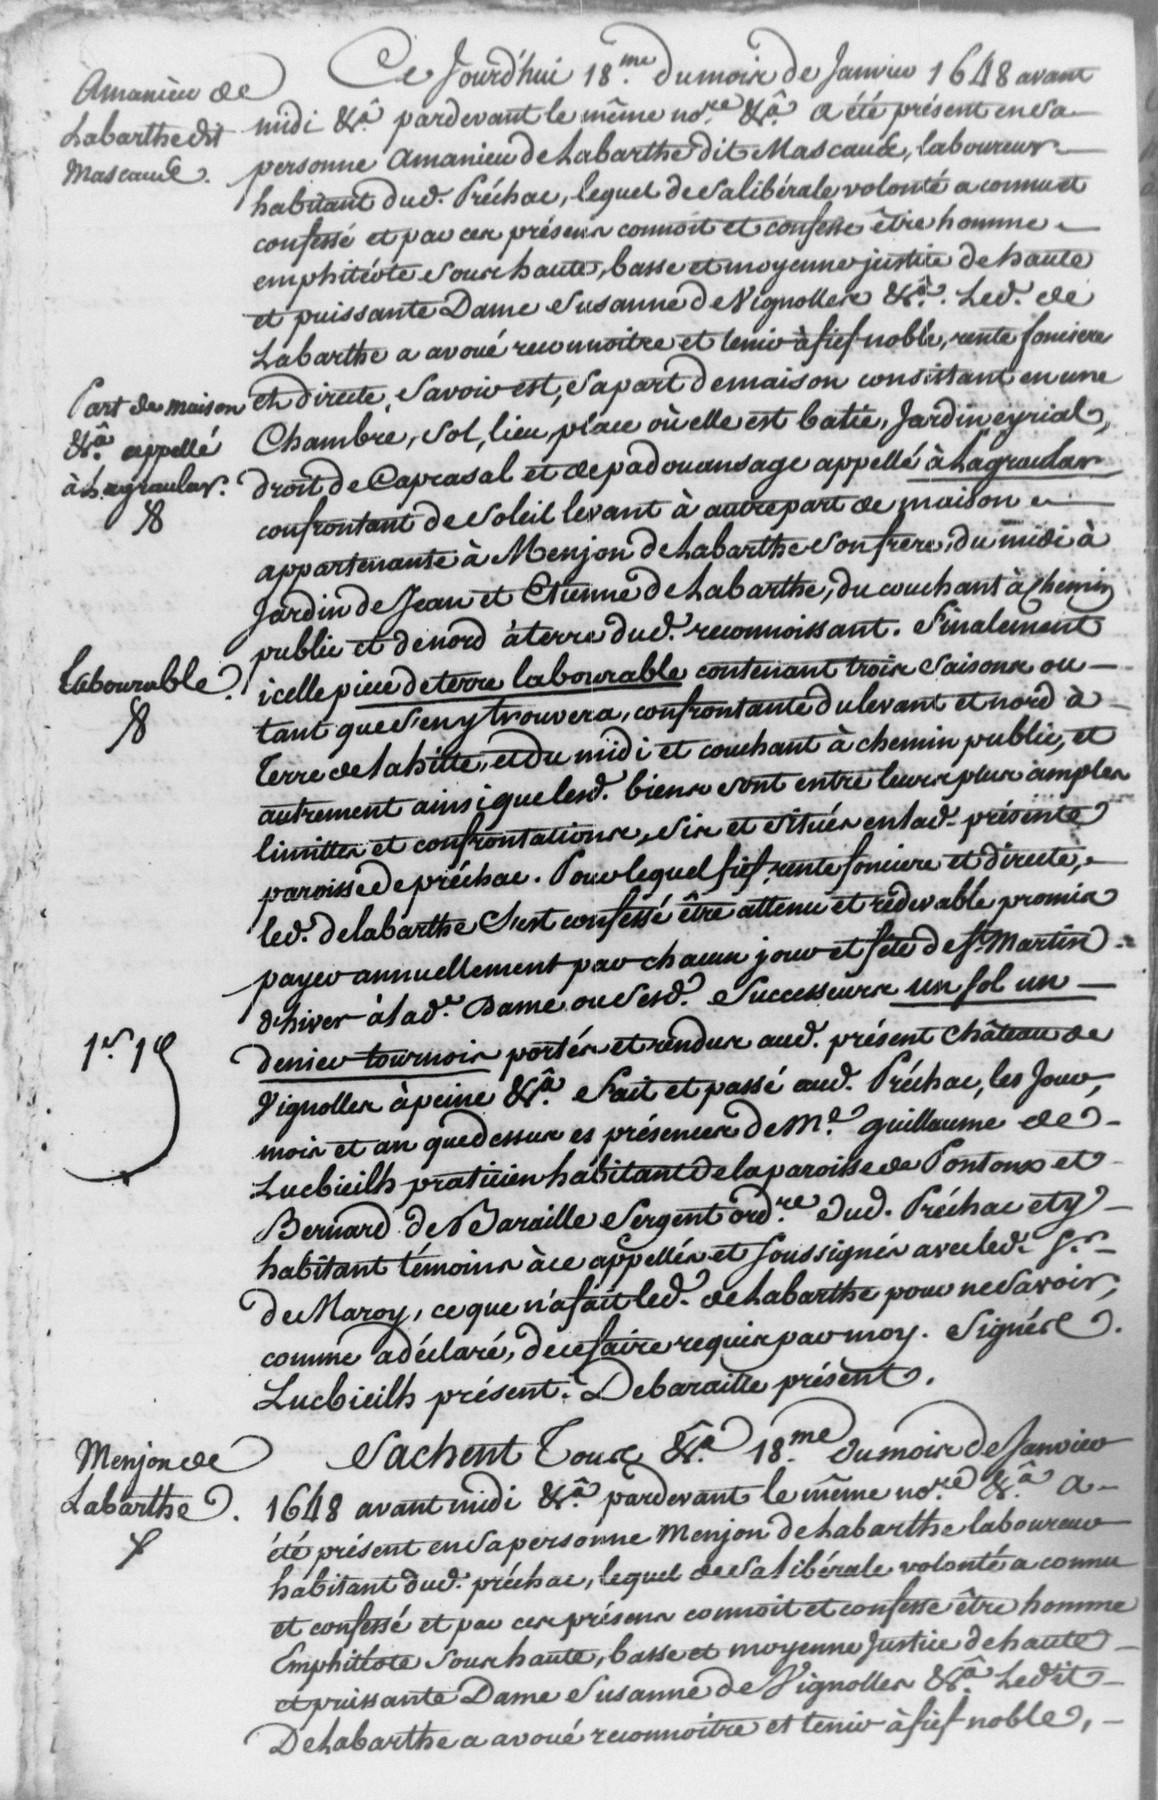 Amanieu de
Labarthe dit
Mascaude.
Ce Jourd'hui 18.me du mois de Janvier 1648 avant
midi &a. pardevant le même no.re &a. a été présent en sa
personne Amanieu de Labarthe dit Mascaude, laboureur
habitant dud. Préchac, lequel de sa libérale volonté a connu et
confessé et par ces présens connoit et confesse être homme
emphitéote sous haute, basse et moyenne justice de haute
et puissante Dame Susanne de Vignolles &a. Led. de
Labarthe a avoué reconnoitre et tenir à fief noble, rente fonciere
Part de maison
&a. appellé
à Lagraular.
et directe, savoir est, sa part de maison consistant en une
Chambre, sol, lieu, place où elle est batie, Jardin eyrial,
droit de Caprasal et de padouansage appellé à Lagraular
confrontant de soleil levant à autre part de maison
appartenante à Menjon de Labarthe son frère, du midi à
Jardin de Jean et Etienne de Labarthe, du couchant à Chemin
public et de nord à terre dud. reconnoissant. Finalement
Labourable.
icelle piece de terre labourable contenant trois saisons ou
tant que s'en y trouvera, confrontante du levant et nord à
Terre de Lahitte, et du midi et couchant à chemin public, et
autrement ainsi que lesd. biens sont entre leurs plus amples
limittes et confrontations, sis et situés en lad. présente
paroisse de préchac. Pour lequel fief, rente fonciere et directe,
led. delabarthe s'est confessé être attenu et redevable promis
payer annuellement par chacun jour et fête de St. Martin
d'hiver à lad.e Dame ou sesd. successeurs un sol un
1s. 1d
denier tournois portés et rendus aud. présent château de
Vignolles à peine &a. Fait et passé aud. Préchac, les Jour,
mois et an que dessus es présences de M.e guillaume de
Lucbieilh praticien habitant de la paroisse de Pontonx et
Bernard de Baraille Sergent ord.re dud. Préchac et y
habitant témoins à ce appellés et soussignés avec led. Sr.
de Maroy, ce que n'a fait led. de Labarthe pour ne savoir,
comme a déclaré, de ce faire requis par moy. Signés
Lucbieilh présent. Debaraille présent.
Menjon de
Labarthe.
Sachent Tous &a. 18.me du mois de Janvier
1648 avant midi &a. pardevant le même no.re &a. a
été présent en sa personne Menjon de Labarthe laboureur
habitant dud. préchac, lequel de sa libérale volonté a connu
et confessé et par ces présens connoit et confesse être homme
Emphitéote sous haute, basse et moyenne Justice de haute
et puissante Dame Susanne de Vignolles &a. Ledit
De Labarthe a avoué reconnoitre et tenir à fief noble,